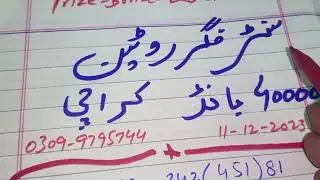 Prize-Bond
سنٹر فگر روٹین
40000 بانڈ کراچی
0309-9795744
11-12-2023
342(451)81